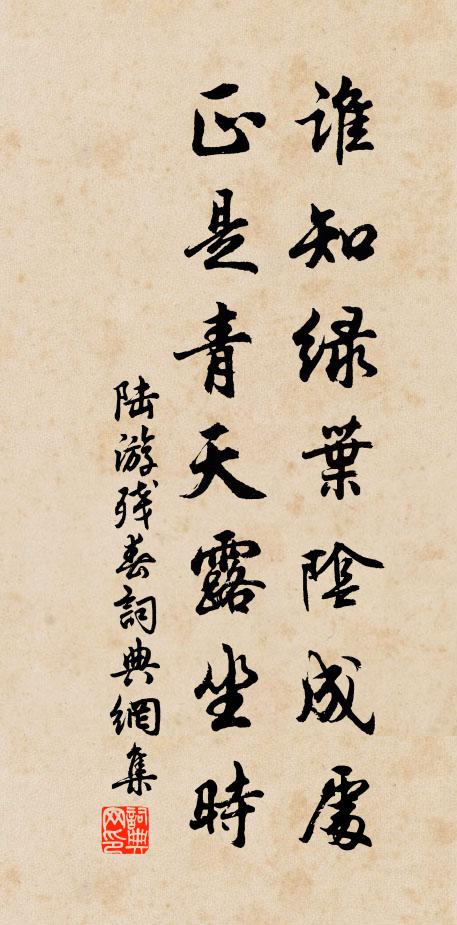 誰知緑葉陰成處
正是青天露坐時
陸游殘春詞典網集
詞典網印